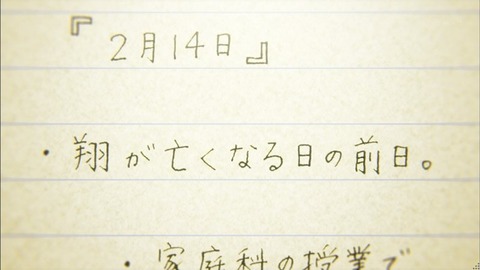 『2月14日』
・翔が亡くなる日の前日。
・家庭科の授業で